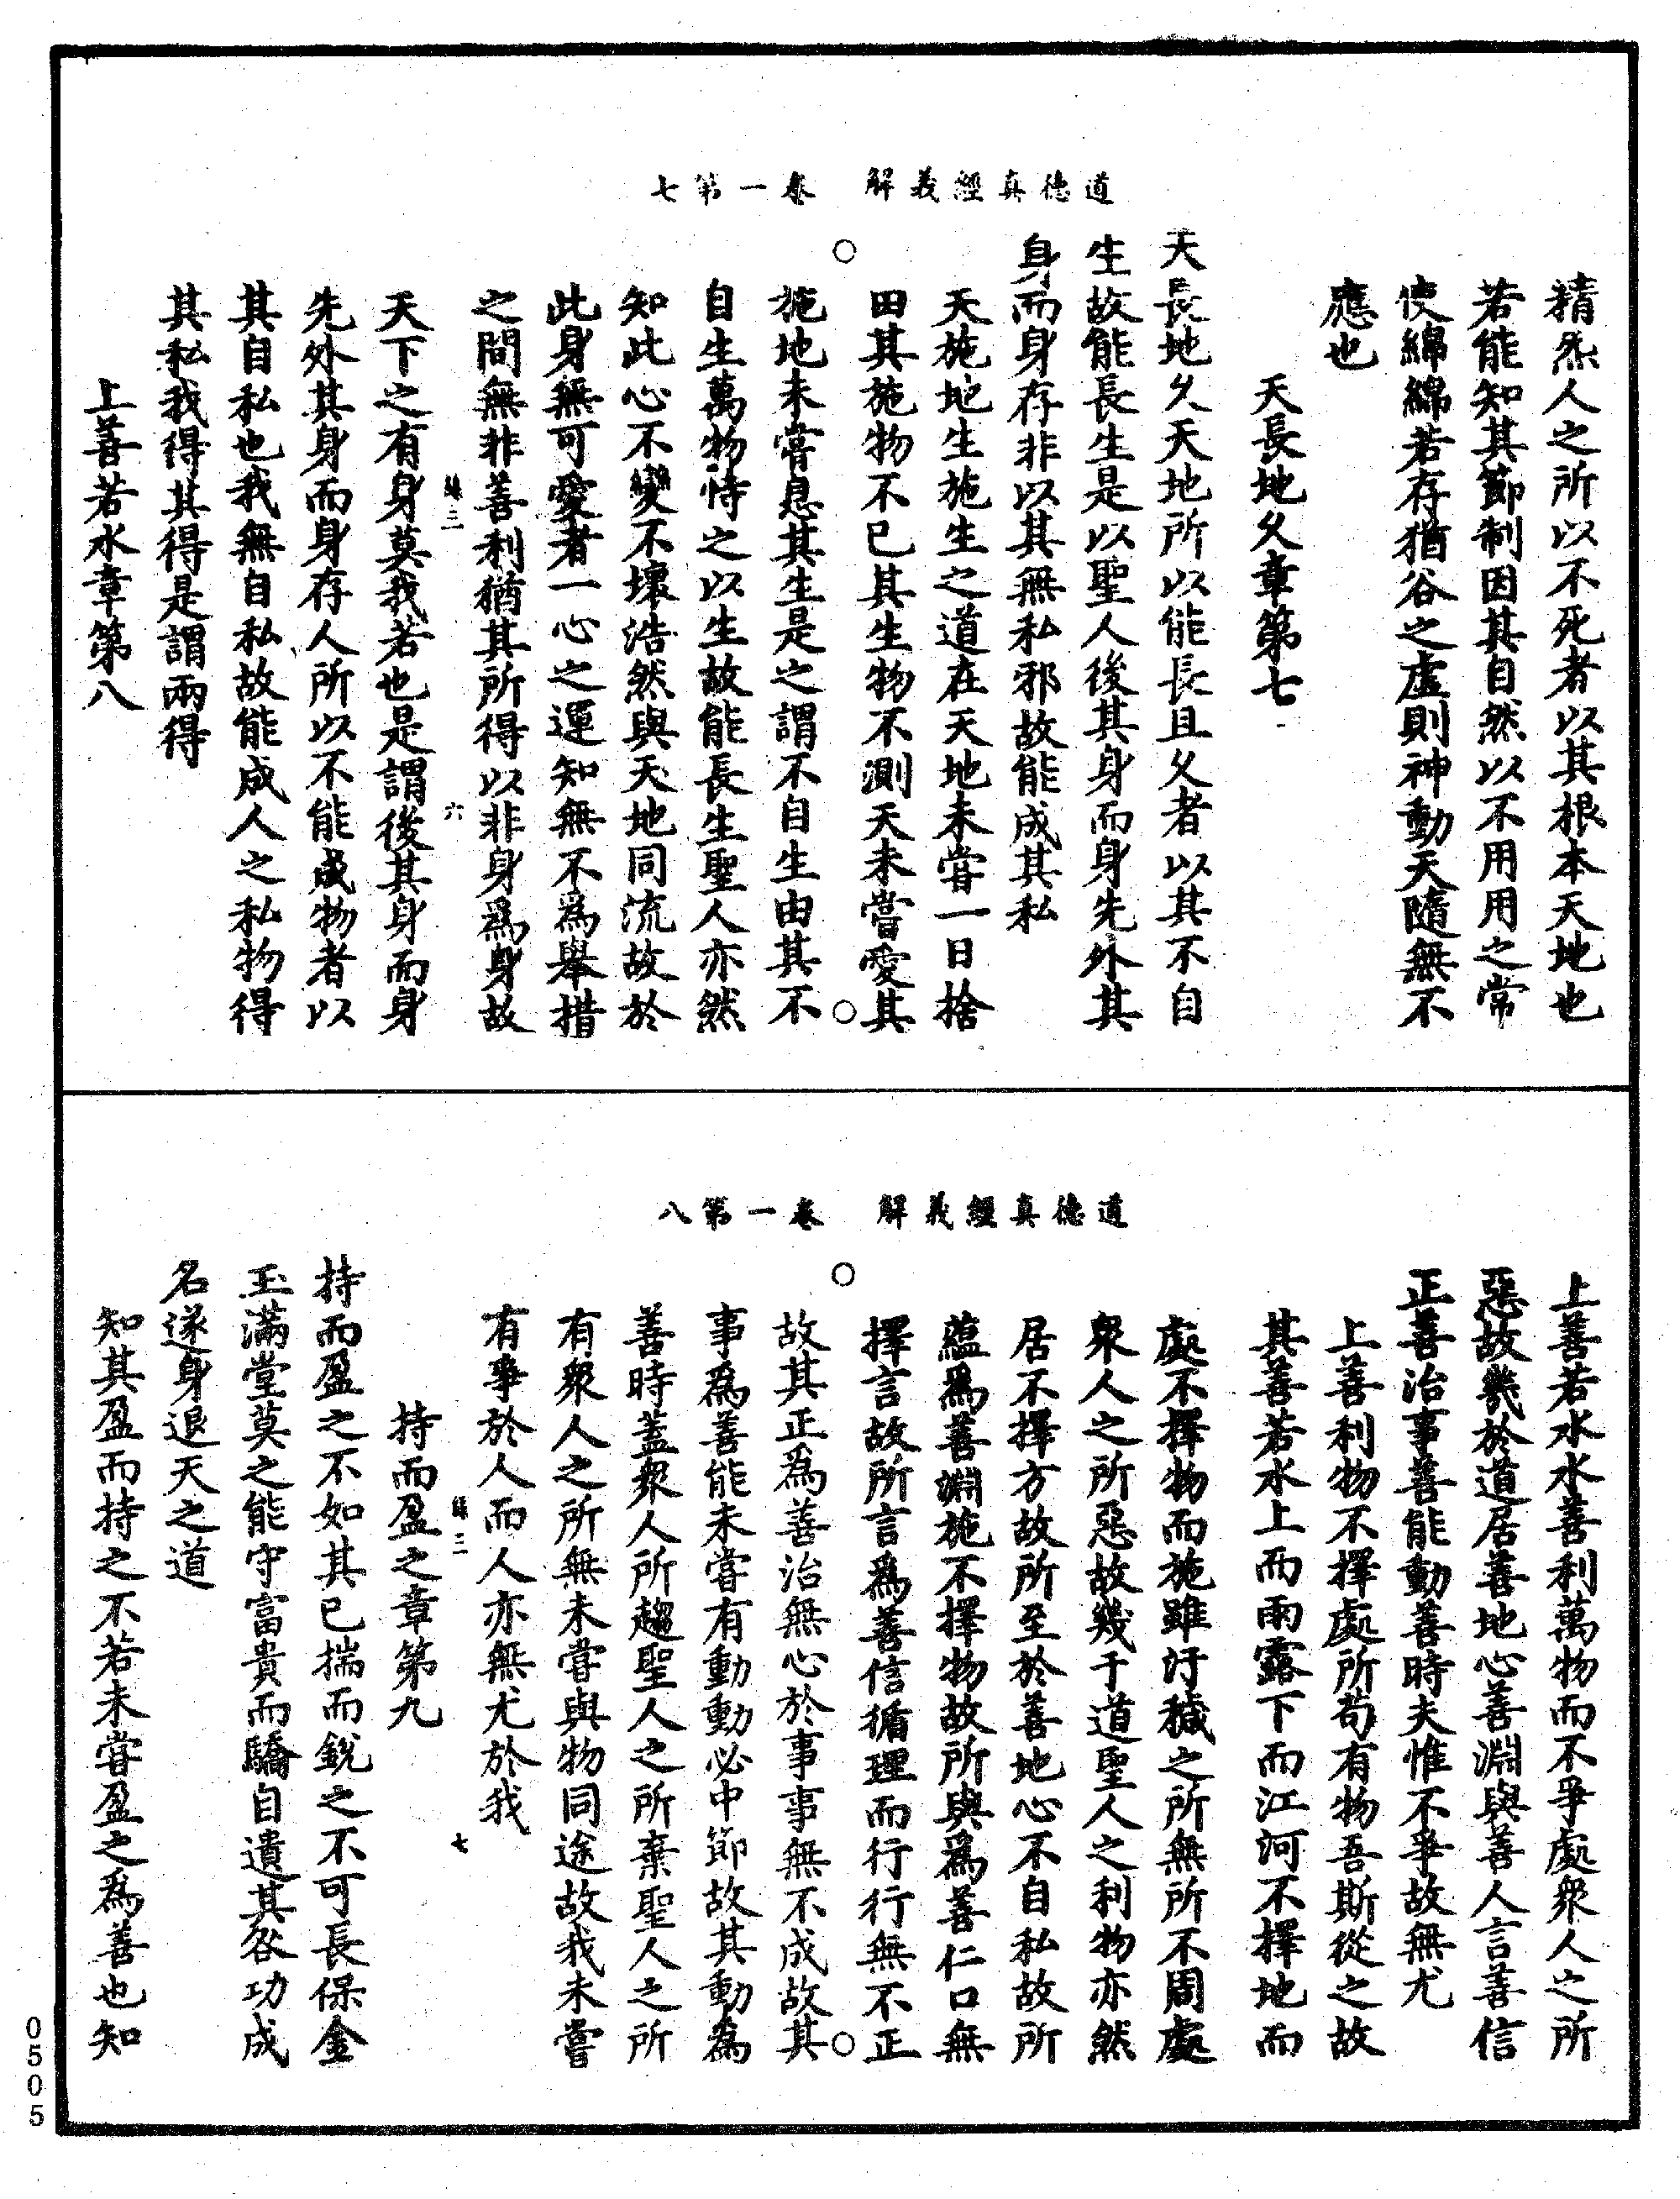 道德真經義解　卷一第七
精炁人之所以不死者以其根本天地也
若能知其節制因其自然以不用用之常
使綿綿若存猶谷之虛則神動天隨無不
應也
天長地久章第七
天長地久天地所以能長且久者以其不自
生故能長生是以聖人後其身而身先外其
身而身存非以其無私邪故能成其私
天施地生施生之道在天地未嘗一日捨
田其施物不已其生物不測天未嘗愛其
施地未嘗息其生是之謂不自生由其不
自生萬物恃之以生故能長生聖人亦然
知此心不變不壞浩然與天地同流故於
此身無可愛者一心之運知無不爲舉措
之間無非善利猶其所得以非身爲身故
絲三　六
天下之有身莫我若也是謂後其身而身
先外其身而身存人所以不能成物者以
其自私也我無自私故能成人之私物得
其私我得其得是謂兩得
上善若水章第八
道德真經義解　卷一第八
上善若水水善利萬物而不爭處衆人之所
惡故幾於道居善地心善淵與善人言善信
正善治事善能動善時夫惟不爭故無尤
上善利物不擇處所苟有物吾斯從之故
其善若水上而雨露下而江河不擇地而
處不擇物而施雖汙穢之所無所不周處
衆人之所惡故幾于道聖人之利物亦然
居不擇方故所至於善地心不自私故所
蘊爲善淵施不擇物故所與爲善仁口無
擇言故所言爲善信循理而行行無不正
故其正爲善治無心於事事無不成故其
事爲善能未嘗有動動必中節故其動爲
善時蓋衆人所趨聖人之所棄聖人之所
有衆人之所無未嘗與物同途故我未嘗
有爭於人而人亦無尤於我
絲三　七
持而盈之章第九
持而盈之不如其已揣而銳之不可長保金
玉滿堂莫之能守富貴而驕自遺其咎功成
名遂身退天之道
知其盈而持之不若未嘗盈之爲善也知
0505